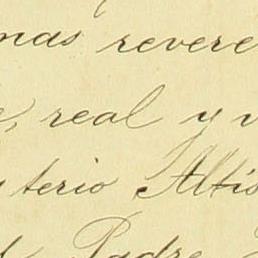 mas revere
, real y v
sterio Altís
Padre